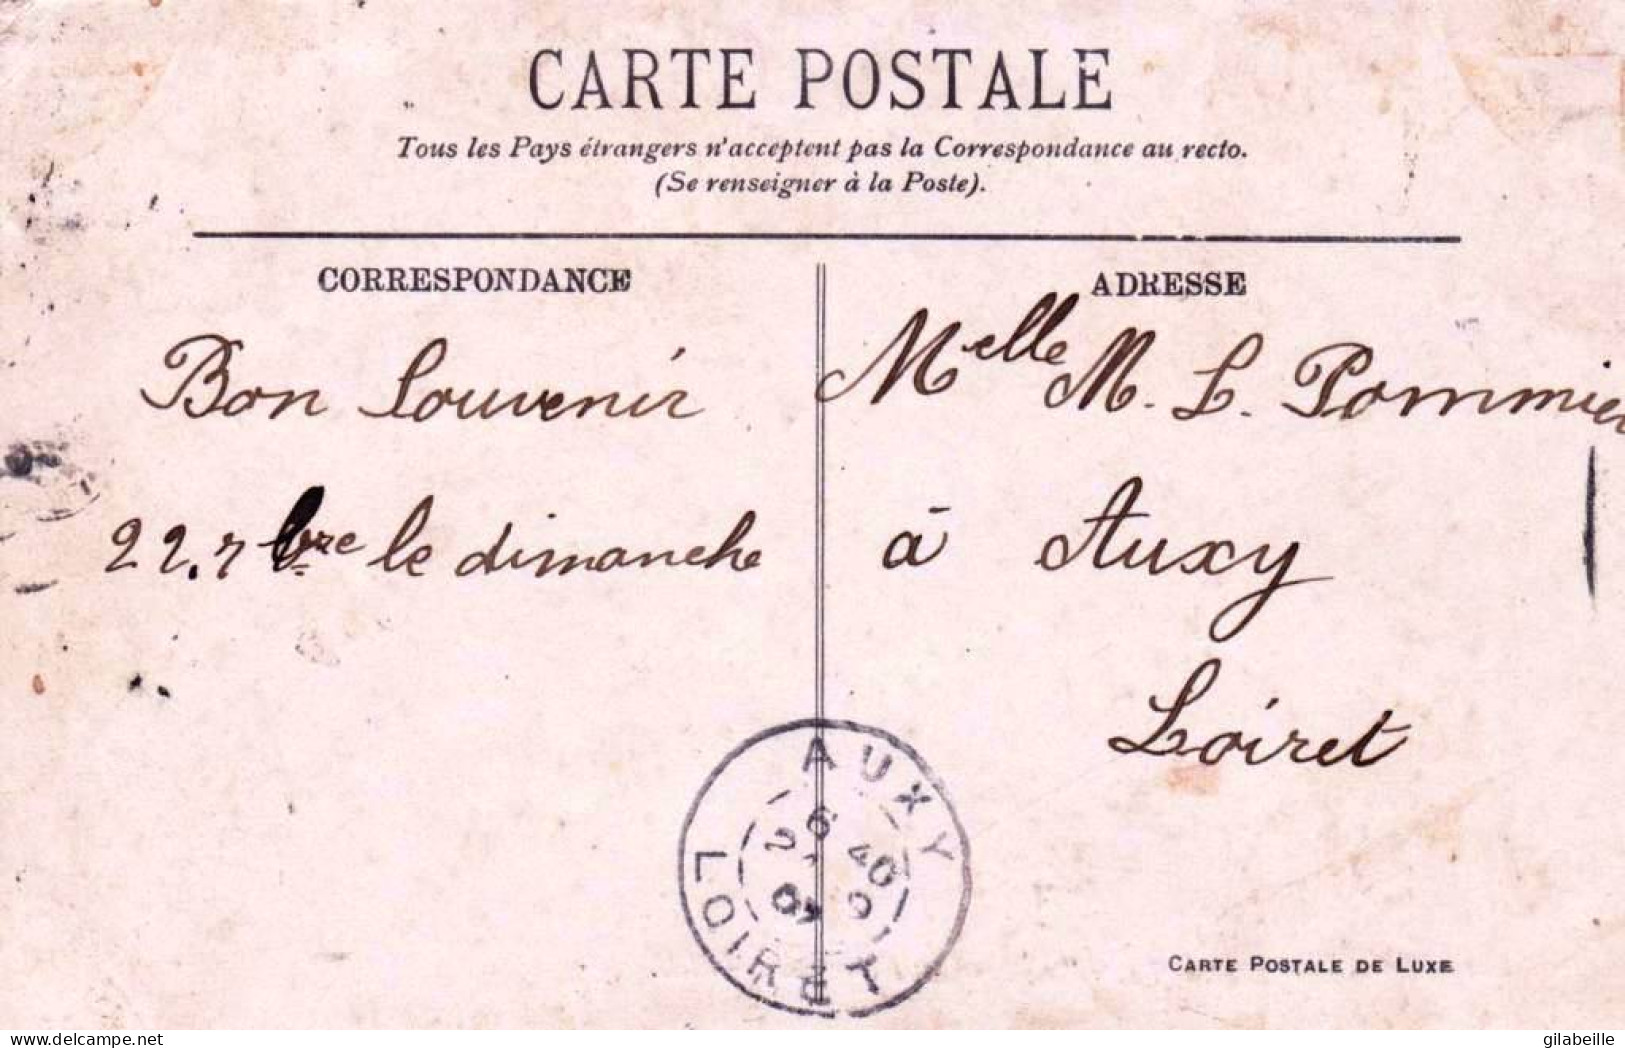 CARTE POSTALE
Tous les Pays étrangers n'acceptent pas la Correspondance au recto.
(Se renseigner à la Poste).
CORRESPONDANCE
Bon Souvenir
22.7bre le dimanche
ADRESSE
Melle M. L. Pommier
à Auxy
Loiret
AUXY
6 40
LOIRET
CARTE POSTALE DE LUXE
delcampe.net
gilabeille